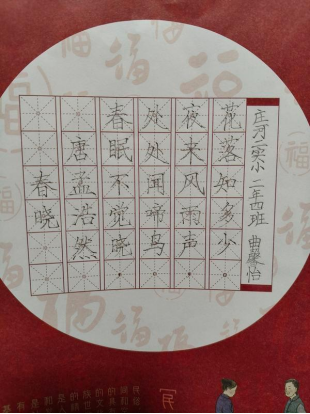 春晓
唐孟浩然
春眠不觉晓，
处处闻啼鸟。
夜来风雨声，
花落知多少。
庄河实小 二年四班 曲馨怡
福
民